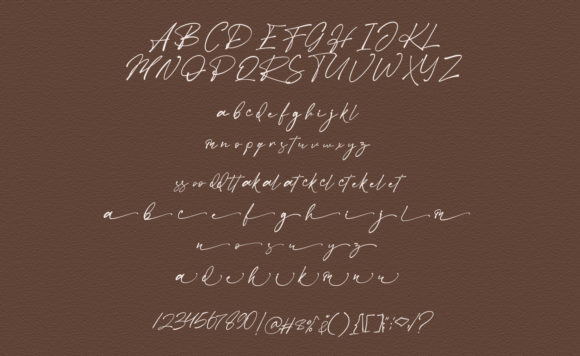 A B C D E F G H I J K L
M N O P Q R S T U V W X Y Z
a b c d e f g h i j k l
m n o p q r s t u v w x y z
ss oo dd tt ak al at ck cl ct ek el et
a b c e f g h i j l m
n o s u y z
a d e h i k m n u
1234567890!@#&%$()/[]:;<>?